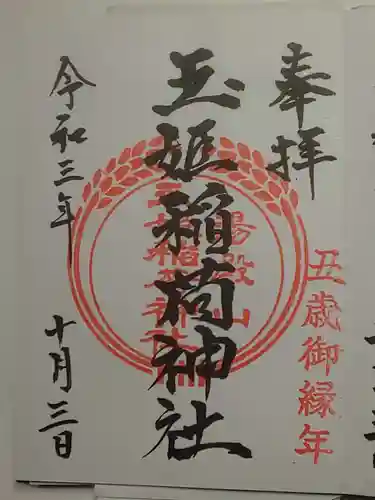 奉拝
丑歳御縁年
玉姫稲荷神社
湯殿山
玉姫稲荷神社
令和三年
十月三日